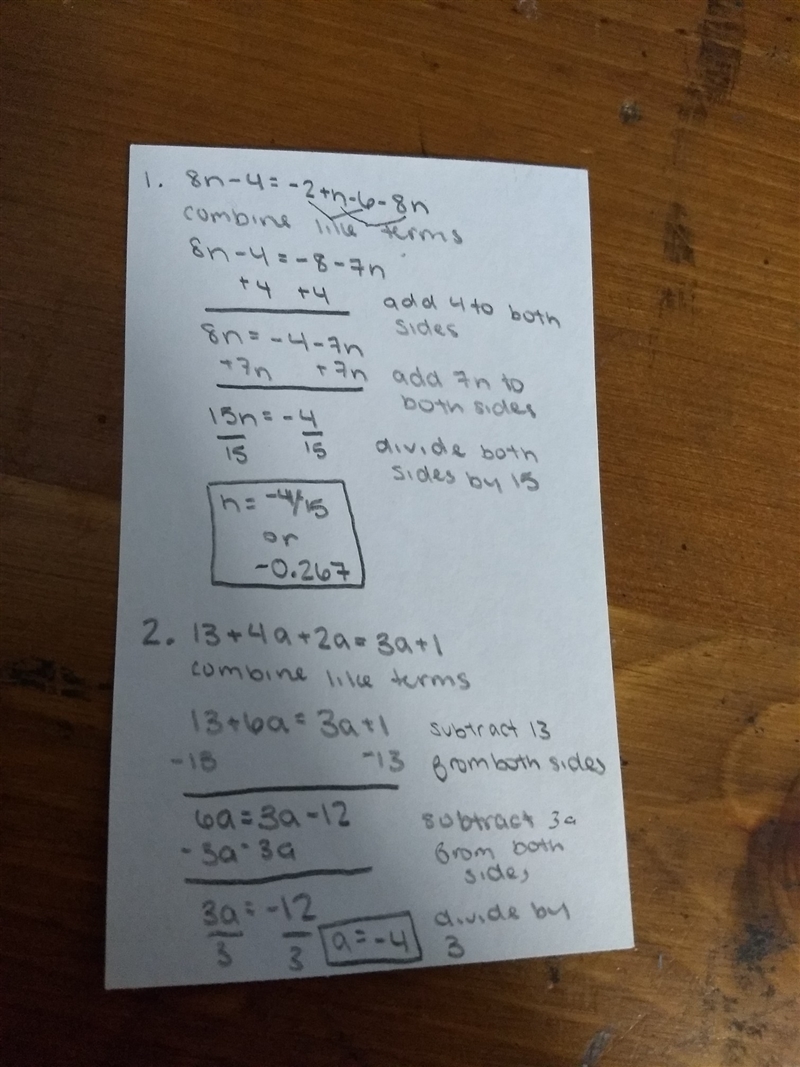 1. 8n-4=-2+n-6-8n
combine like terms
8n-4=-8-7n
+4 +4 add 4 to both
sides
8n=-4-7n
+7n +7n add 7n to
both sides
15n=-4
15 15 divide both
sides by 15
n=-4/15
or
-0.267
2. 13+4a+2a=3a+1
combine like terms
13+6a=3a+1 subtract 13
-13 -13 from both sides
6a=3a-12 subtract 3a
-3a -3a from both
sides
3a=-12 divide by
3 3 a=-4 3